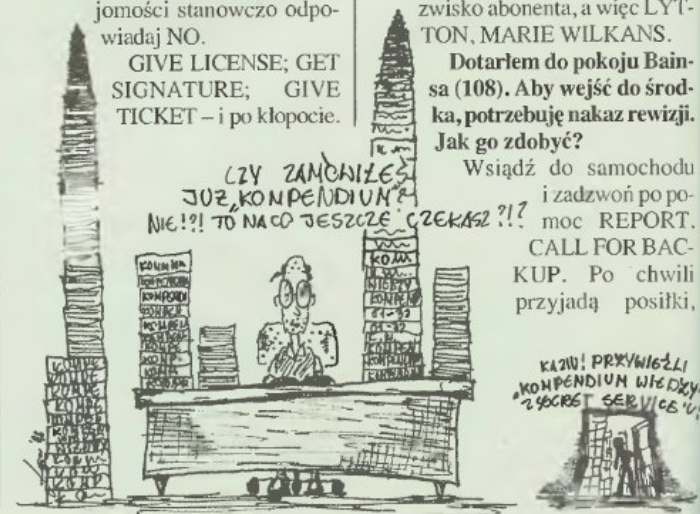 jomości stanowczo odpo-
wiadaj NO.
GIVE LICENSE; GET
SIGNATURE; GIVE
TICKET – i po kłopocie.
zwisko abonenta, a więc LYT-
TON, MARIE WILKANS.
Dotarłem do pokoju Bain-
sa (108). Aby wejść do środ-
ka, potrzebuję nakaz rewizji.
Jak go zdobyć?
Wsiądź do samochodu
i zadzwoń po po-
moc REPORT.
CALL FOR BAC-
KUP. Po chwili
przyjadą posiłki,
CZY ZAMÓWIŁEŚ
JUŻ „KOMPENDIUM"?
NIE!?! TO NA CO JESZCZE CZEKASZ?!?
KAZIU! PRZYWIEŹLI
„KOMPENDIUM WIEDZY
Z SECRET SERVICE'U